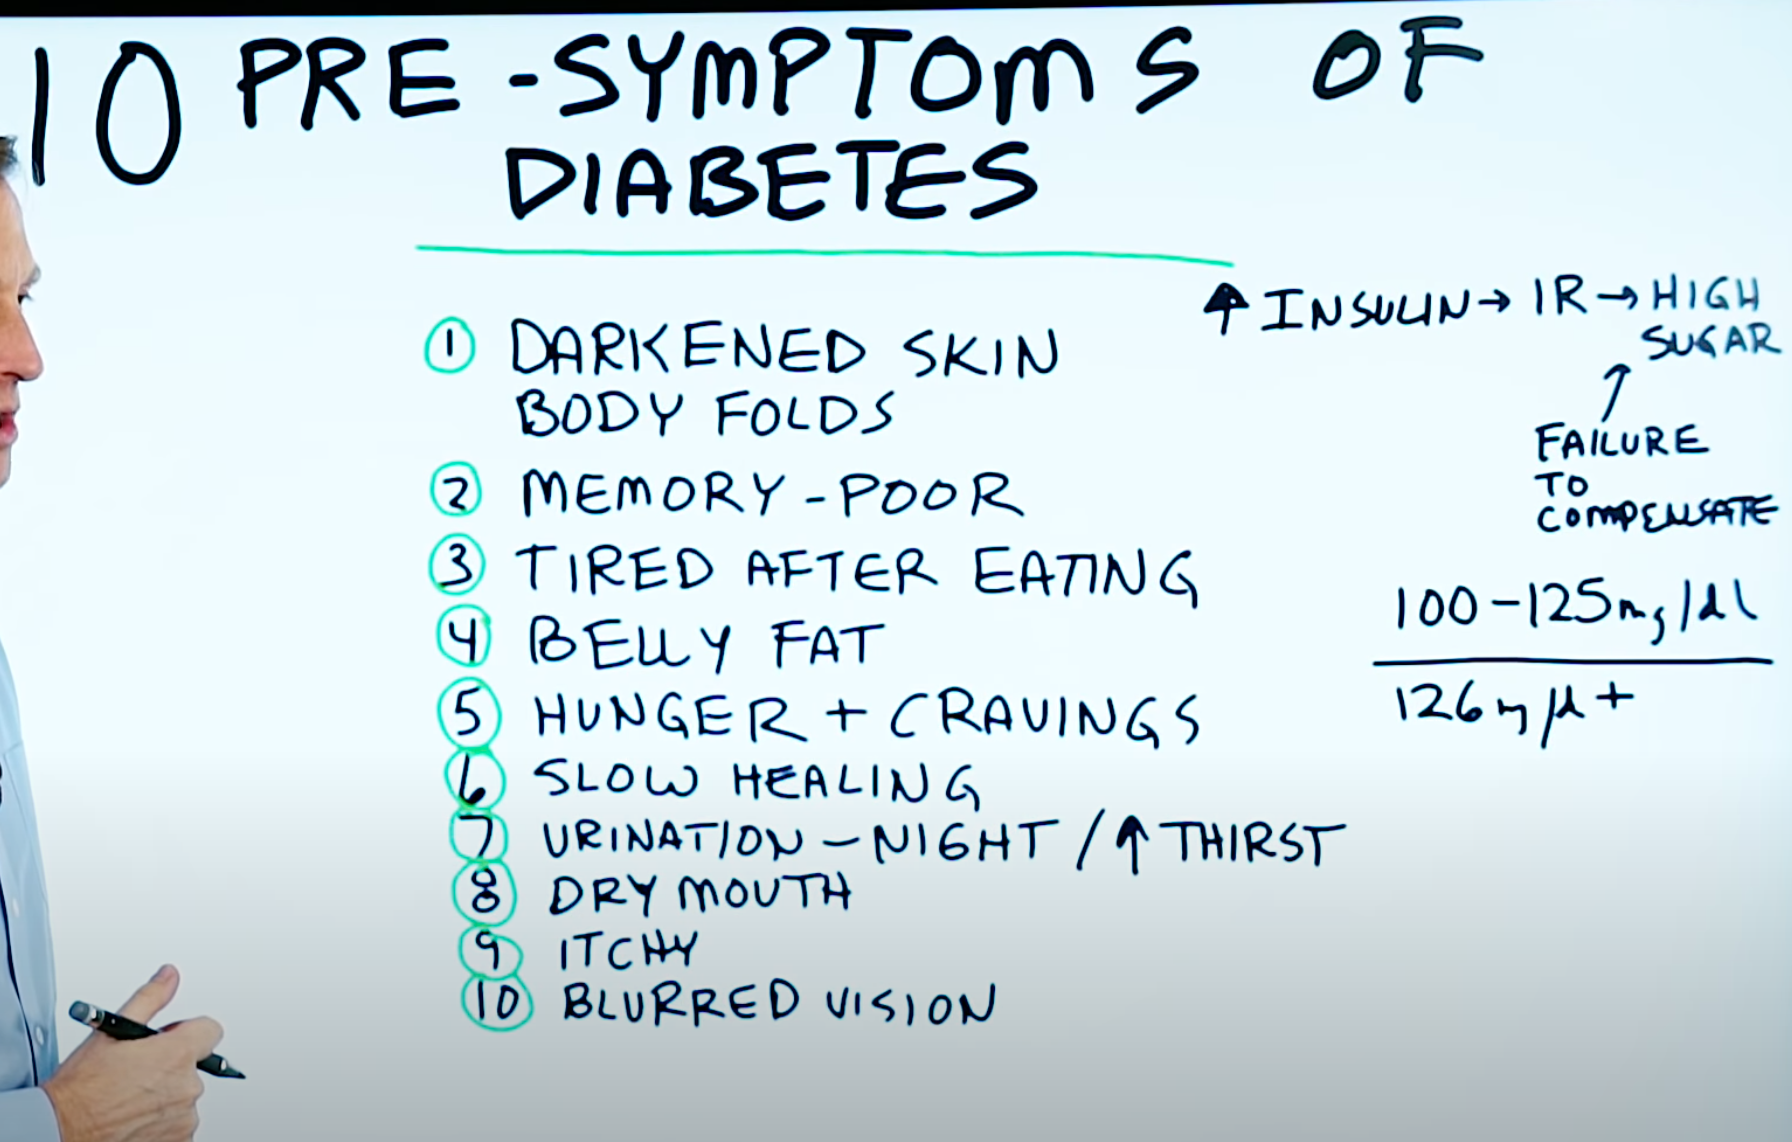 10 PRE-SYMPTOMS OF
DIABETES
1 DARKENED SKIN
BODY FOLDS
2 MEMORY - POOR
3 TIRED AFTER EATING
4 BELLY FAT
5 HUNGER + CRAVINGS
6 SLOW HEALING
7 URINATION - NIGHT / ↑ THIRST
8 DRY MOUTH
9 ITCHY
10 BLURRED VISION
↑ INSULIN → IR → HIGH
SUGAR
↑
FAILURE
TO
COMPENSATE
100-125mg/dl
126mg/dl+